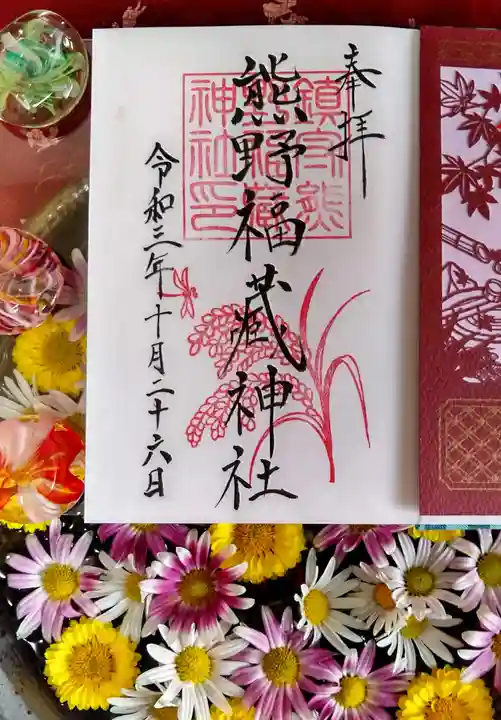 奉拝
熊野福藏神社
令和三年十月二十六日
鎮守熊
野福藏
神社印